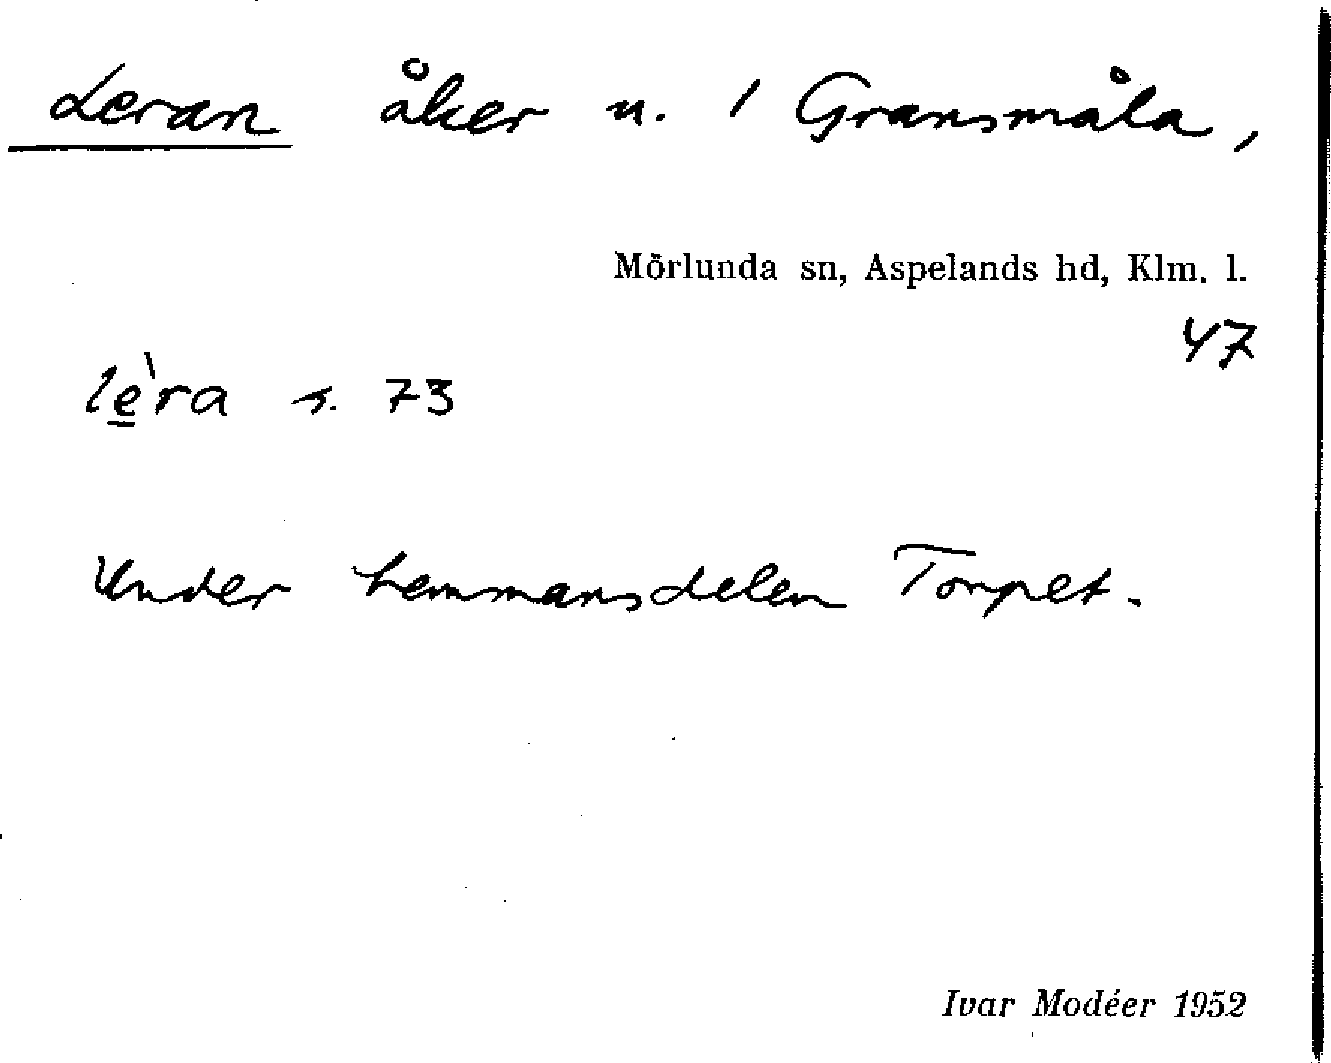 Leran åker u. 1 Gransmåla,
Mörlunda sn, Aspelands hd, Klm. l.
47
lèra s. 73
Under hemmansdelen Torpet.
Ivar Modéer 1952